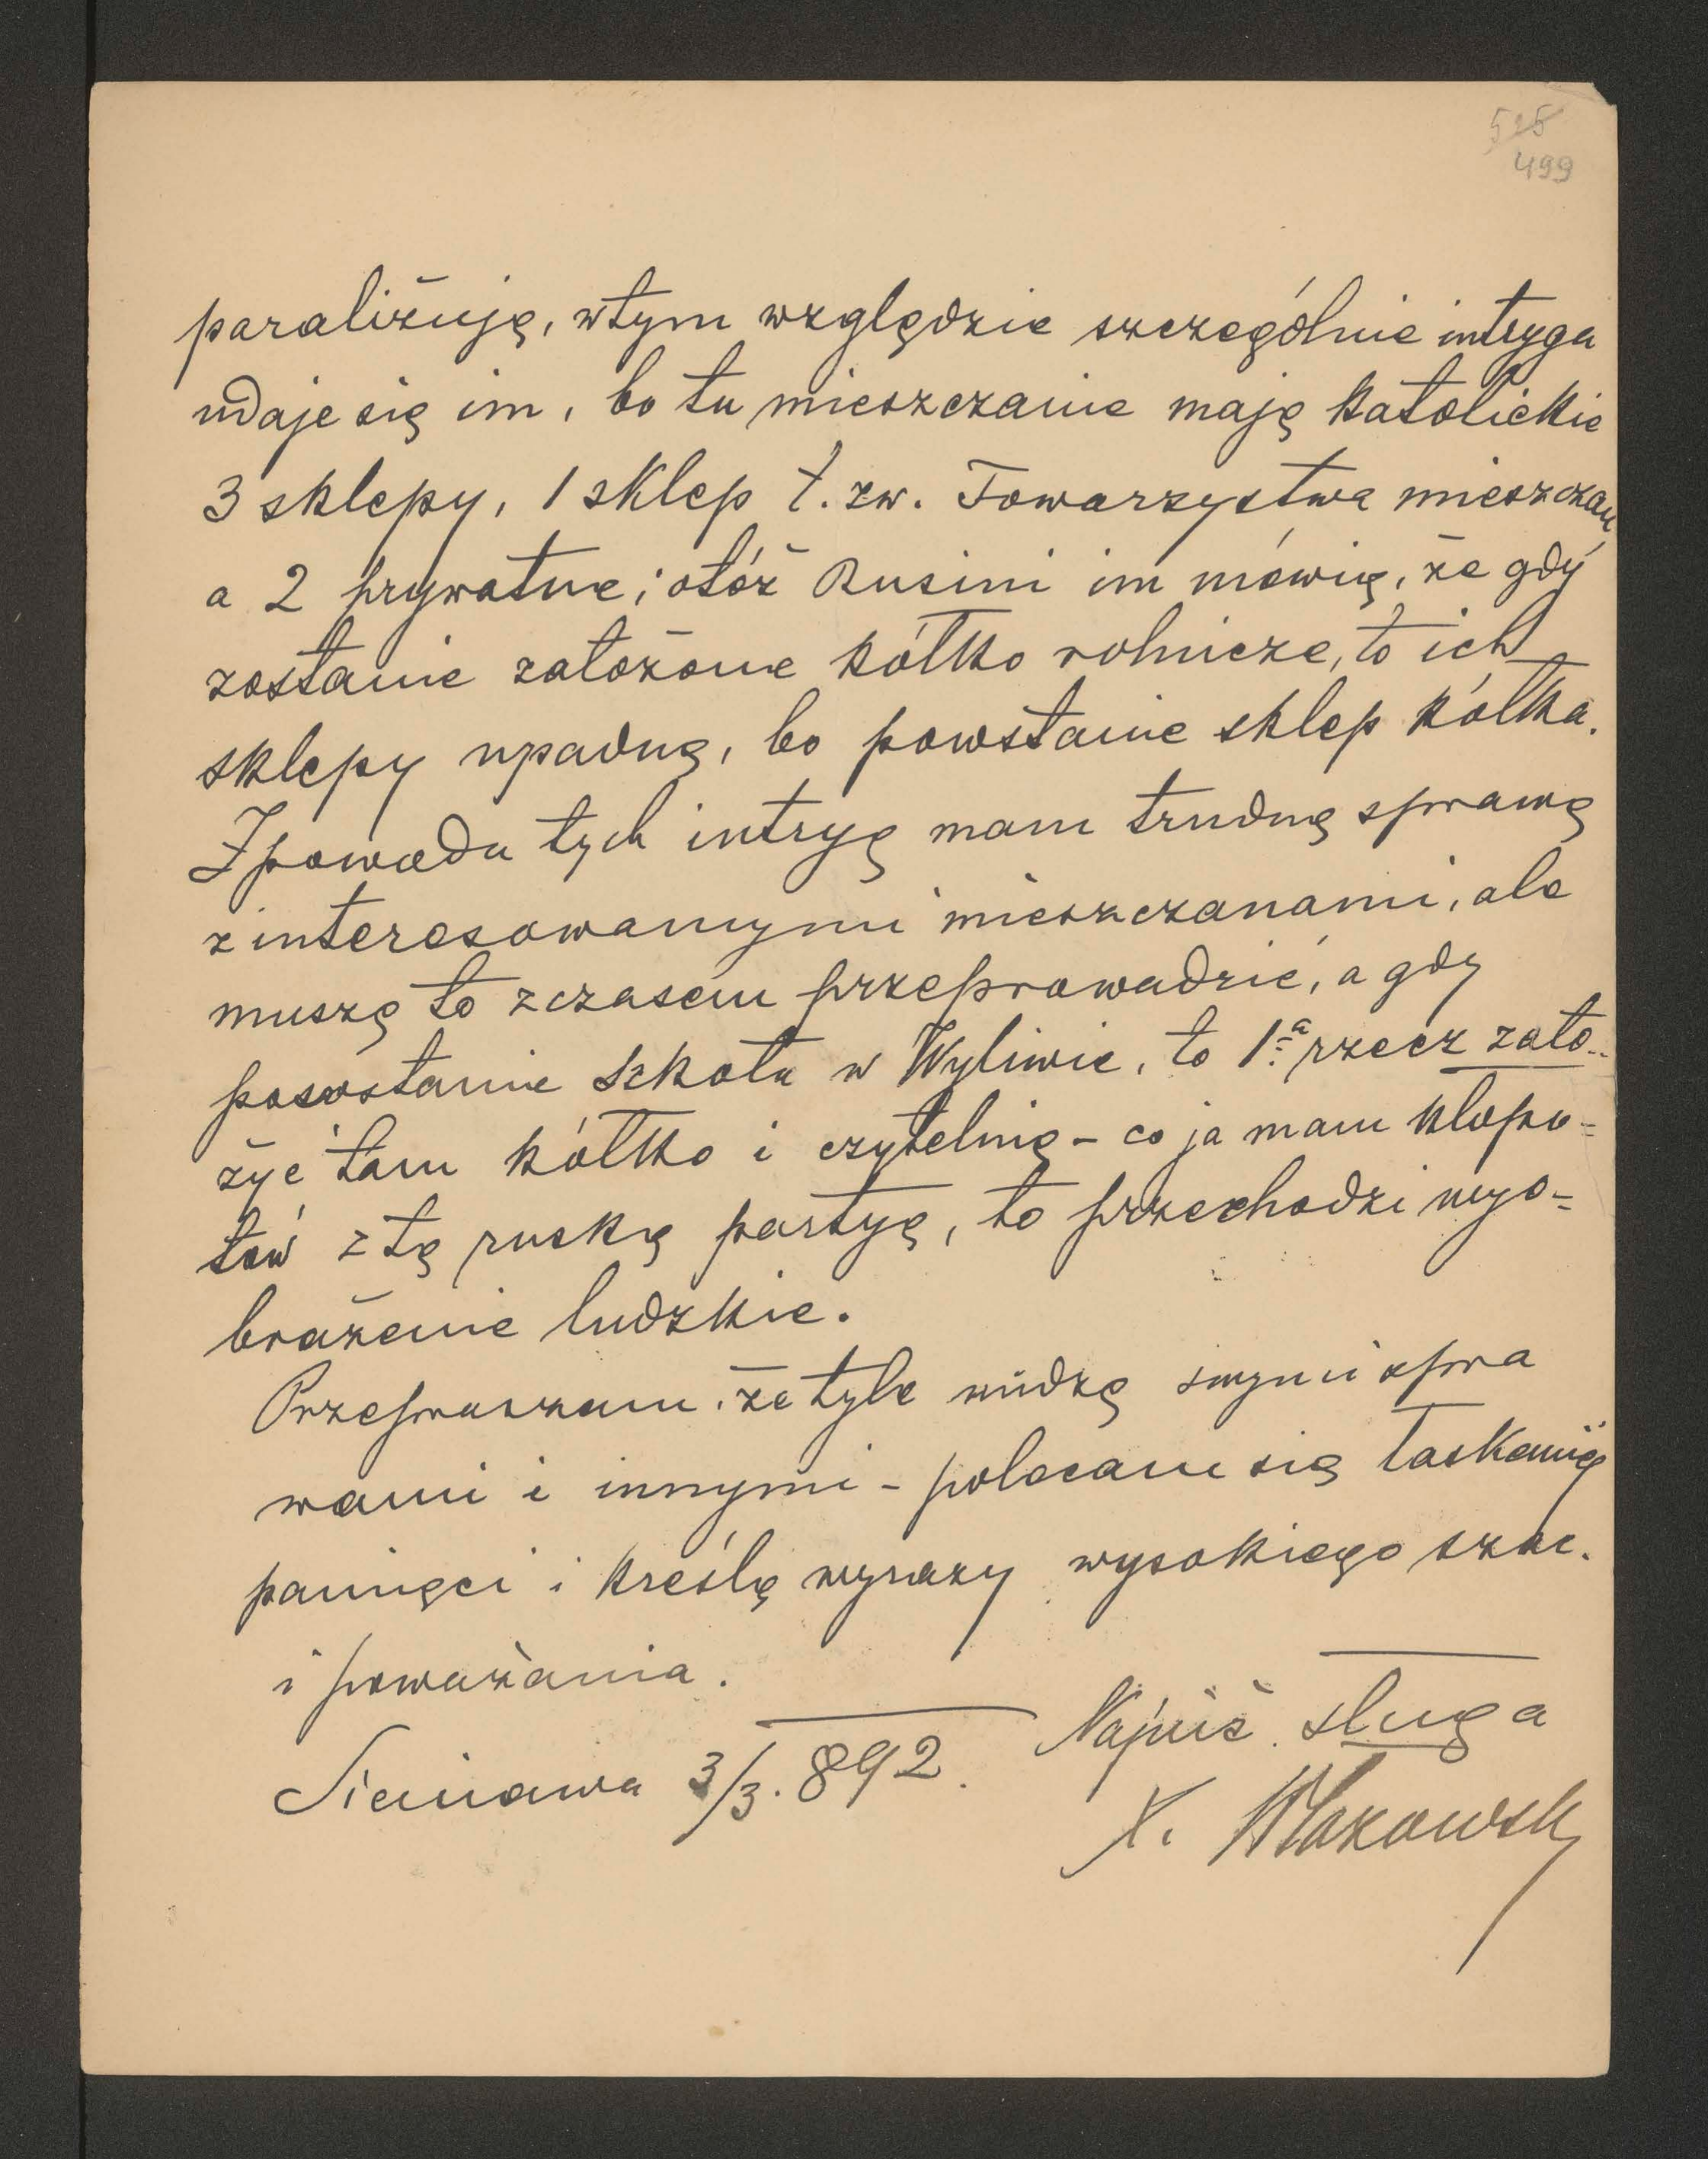 525
499
paraliżują, w tym względzie szczególnie intryga
udaje się im, bo tu mieszczanie mają katolickie
3 sklepy, 1 sklep t. zw. Towarzystwa mieszczan
a 2 prywatne; otóż Rusini im mówią, że gdy
zostanie założone kółko rolnicze, to ich
sklepy upadną, bo powstanie sklep kółka.
Z powodu tych intryg mam trudną sprawę
z interesowanymi mieszczanami, ale
muszę to z czasem przeprowadzić, a gdy
pozostanie szkoła w Wyliwie, to 1a rzecz zało-
żyć tam kółko i czytelnię - co ja mam kłopo=
tów z tą ruską partyą, to przechodzi wyo-
brażenie ludzkie.
Przepraszam, że tyle nudzę swymi spra
wami i innymi - polecam się łaskawéj
pamięci i kreślę wyrazy wysokiego szac.
i poważania.
Najniż. sługa
Sieniawa 3/3. 892.
X.